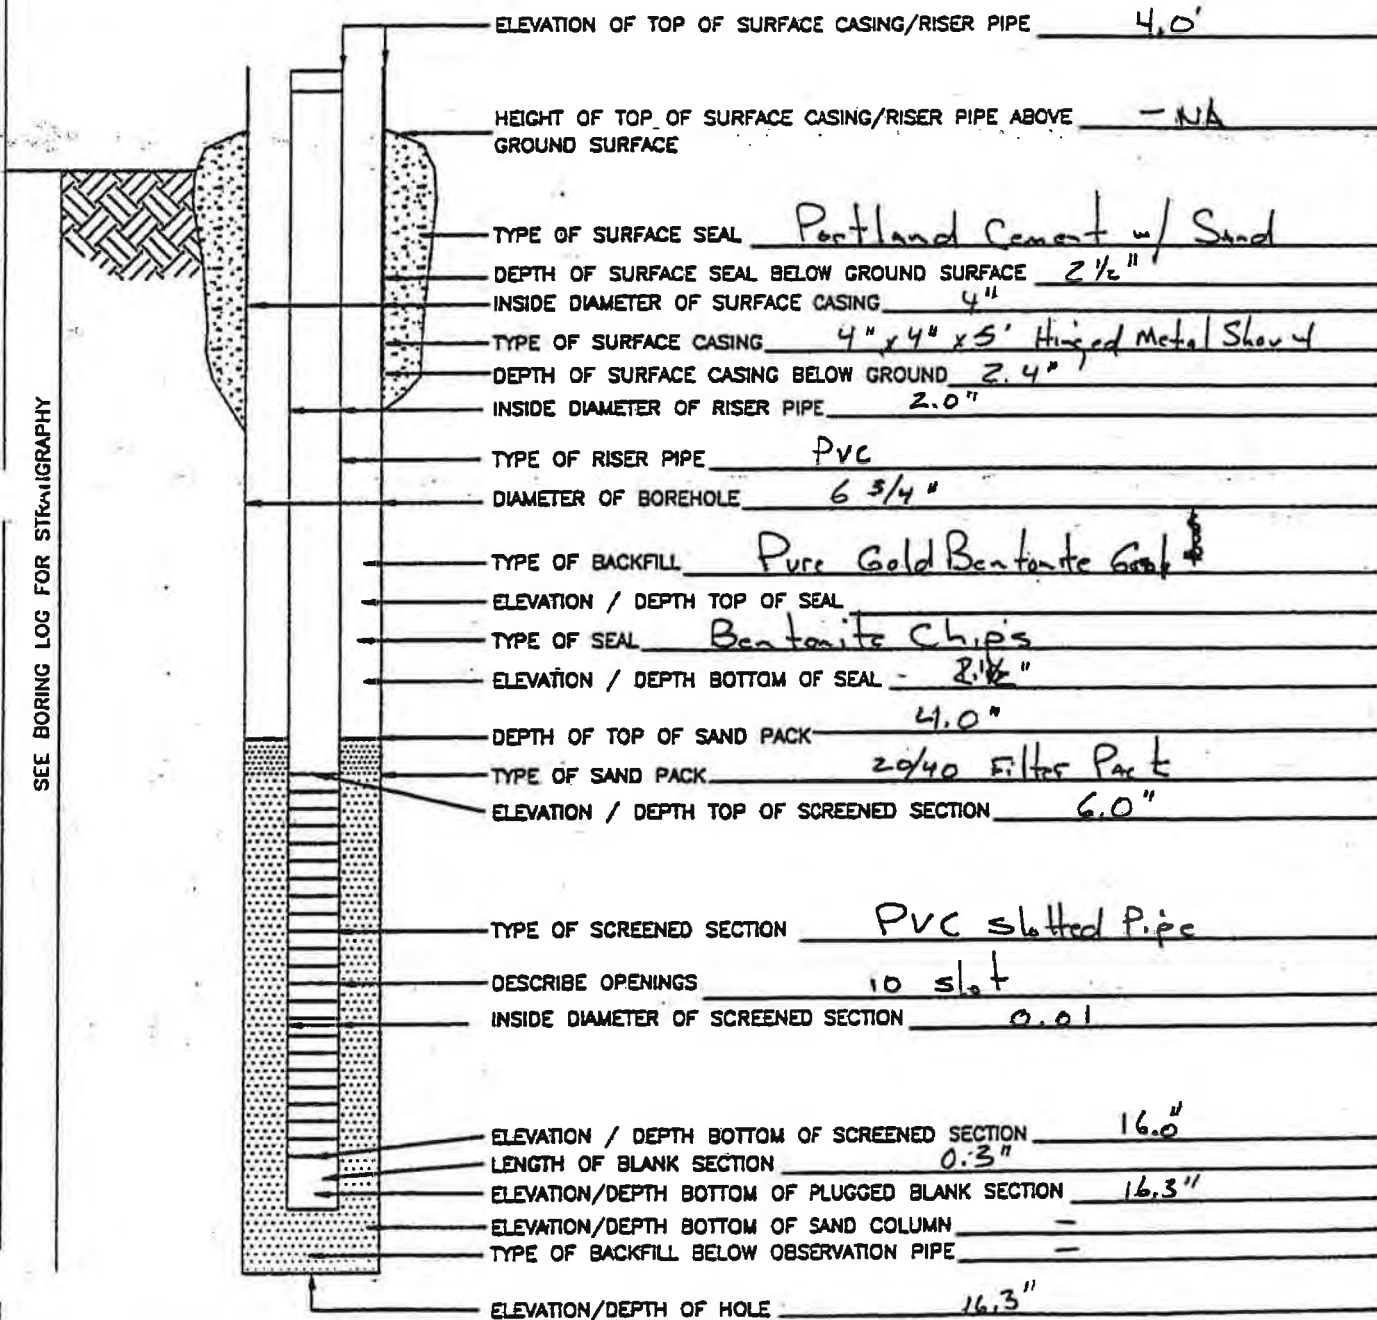 ELEVATION OF TOP OF SURFACE CASING/RISER PIPE 4.0'
HEIGHT OF TOP OF SURFACE CASING/RISER PIPE ABOVE - NA
GROUND SURFACE
TYPE OF SURFACE SEAL Portland Cement w/ Sand
DEPTH OF SURFACE SEAL BELOW GROUND SURFACE 2 1/2"
INSIDE DIAMETER OF SURFACE CASING 4"
TYPE OF SURFACE CASING 4" x 4" x 5' Hinged Metal
DEPTH OF SURFACE CASING BELOW GROUND 2.4"
INSIDE DIAMETER OF RISER PIPE 2.0"
TYPE OF RISER PIPE PVC
DIAMETER OF BOREHOLE 6 3/4"
TYPE OF BACKFILL Pure Gold Bentonite
ELEVATION / DEPTH TOP OF SEAL
TYPE OF SEAL Bentonite Chips
ELEVATION / DEPTH BOTTOM OF SEAL -
DEPTH OF TOP OF SAND PACK 4.0"
TYPE OF SAND PACK 20/40 Filter Pack
ELEVATION / DEPTH TOP OF SCREENED SECTION 6.0"
TYPE OF SCREENED SECTION PVC slotted Pipe
DESCRIBE OPENINGS 10 slot
INSIDE DIAMETER OF SCREENED SECTION 0.01
ELEVATION / DEPTH BOTTOM OF SCREENED SECTION 16.0"
LENGTH OF BLANK SECTION 0.3"
ELEVATION/DEPTH BOTTOM OF PLUGGED BLANK SECTION 16.3"
ELEVATION/DEPTH BOTTOM OF SAND COLUMN -
TYPE OF BACKFILL BELOW OBSERVATION PIPE -
ELEVATION/DEPTH OF HOLE 16.3"
SEE BORING LOG FOR STRATIGRAPHY